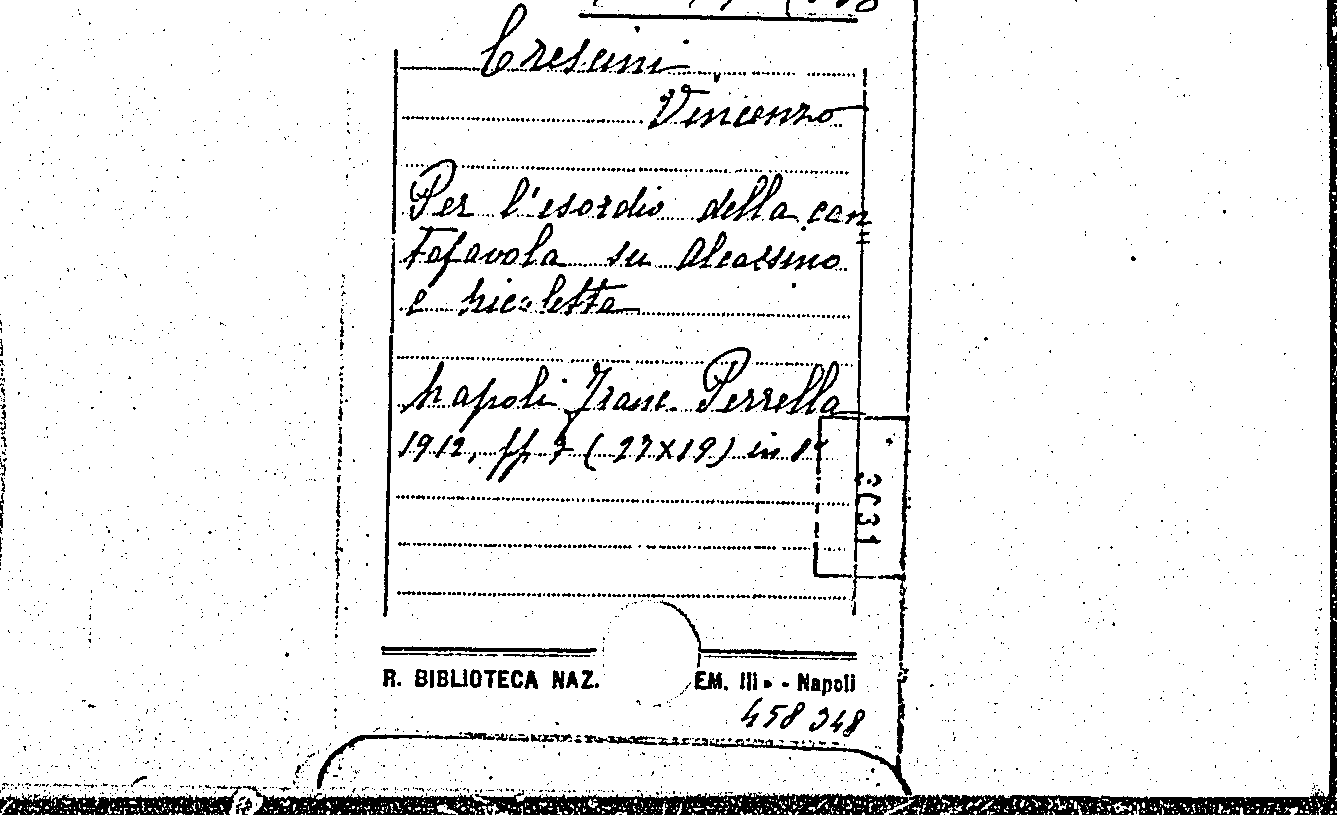 Crescini
Vincenzo
Per l'esordio della can
tafavola su Alcassino
e Nicoletta
Napoli Franc. Perrella
1912, ff. 7 (27x19) in 8º
R. BIBLIOTECA NAZ. EM. III - Napoli
458348